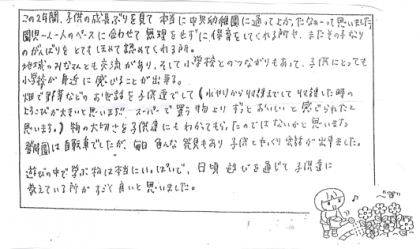 この2年間、子供の成長ぶりを見て本当に中央幼稚園に通ってよかったなぁーって思いました
園児一人一人のペースに合わせて無理をせずに保育をしてくれる所や、またその子なり
のがんばりをとてもほめて認めてくれる所。
地域のみなさんとも交流があり、そして小学校とのつながりもあって、子供にとっても
小学校が身近に感じることが出来る。
畑で野菜などのお世話を子供達でして(水やりから収穫までして収穫した時の
よろこびが大きいと思います!! スーパーで買う物よりずっとおいしいと感じられたと
思います。) 物の大切さを子供達にもわかってもらったのではないかと思います。
登降園は自転車でしたが、毎日色んな発見もあり子供とゆっくり会話が出来ました。
遊びの中で学ぶ物は本当にいっぱいで、日頃遊びを通じて子供達に
教えている所がすごく良いと思いました。